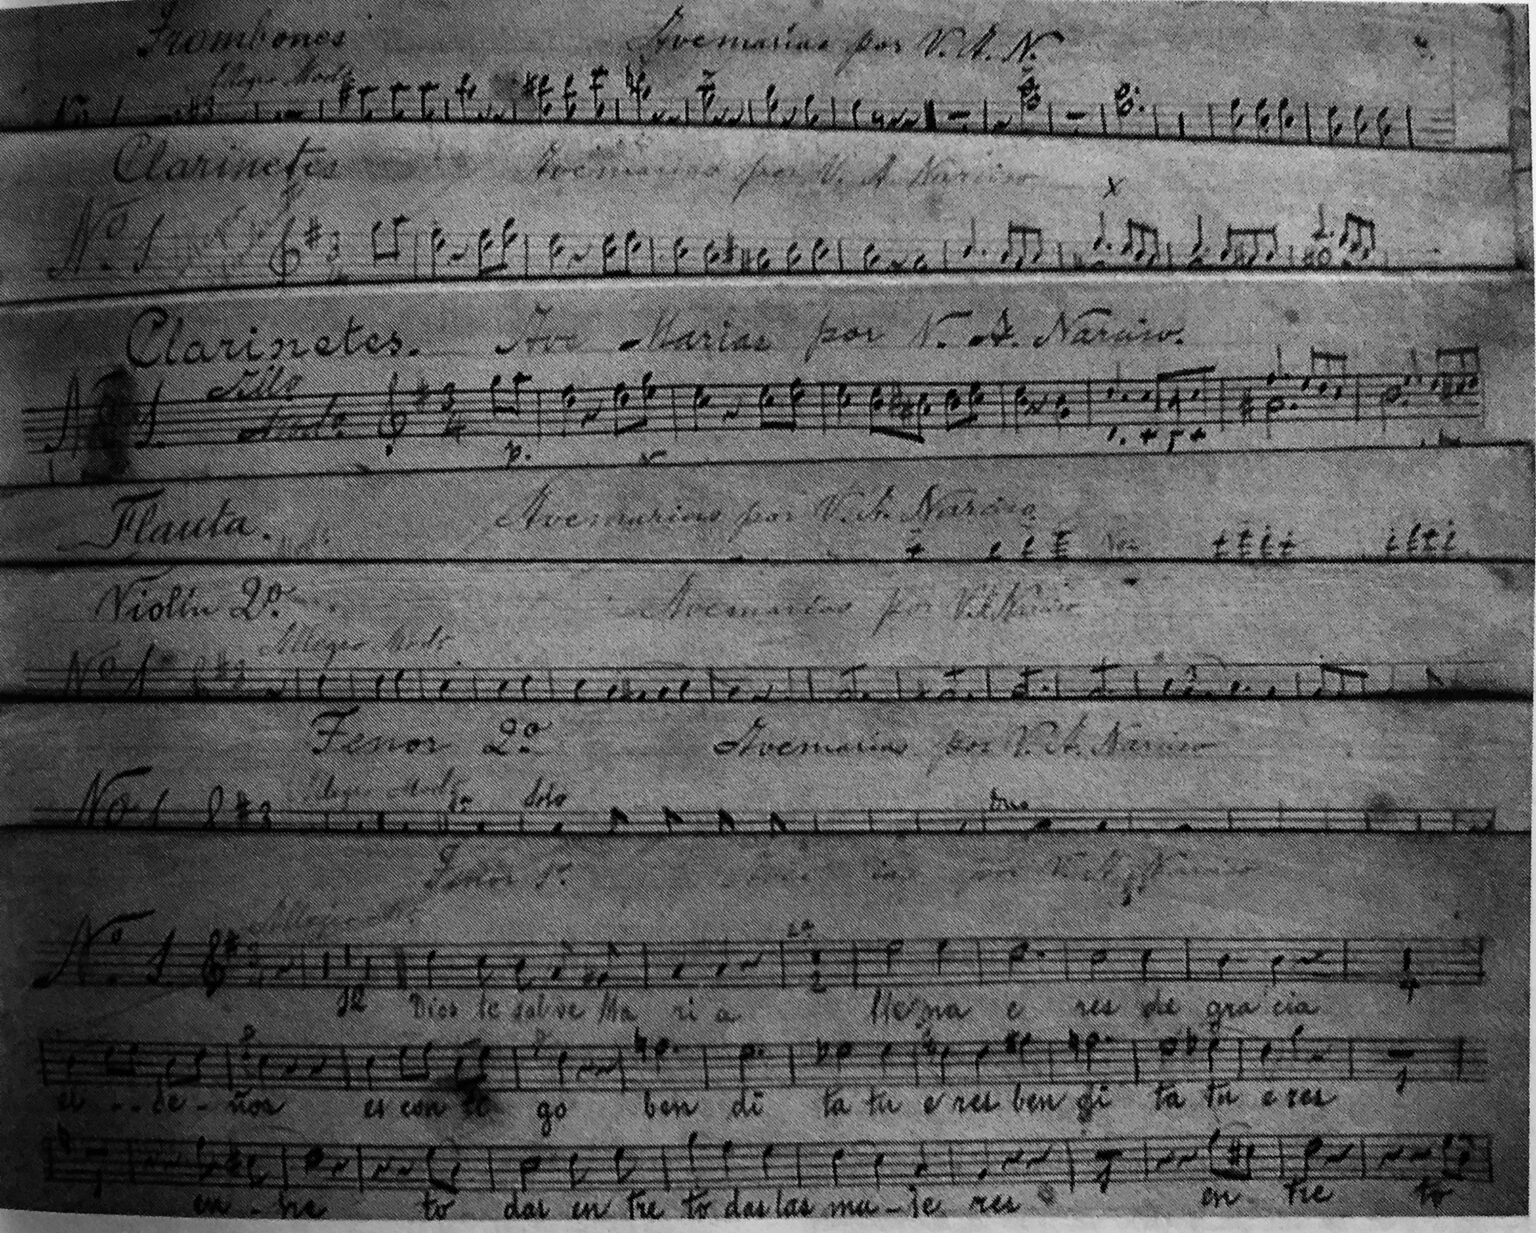 Trombones Avemarias por V. A. N.
Allegro Modto
Clarinetes Avemarias por V. A. Narciso
No. 1
Clarinetes. Ave Marias por V. A. Narciso.
No. 1 Allo Modto
p.
Flauta. Avemarias por V. A. Narciso
Violín 2o. Avemarias por V. A. Narciso
No. 1 Allegro Modto.
Tenor 2o. Avemarias por V. A. Narciso
No. 1 Allegro Modto Solo Duo
Tenor 1o. por V. A. Narciso
No. 1 Allegro
12 Dios te salve Ma ri a lle na e res de gra cia
el - - se - ñor es con ti go ben di ta tu e res ben di ta tu e res
en - tre to das en tre to das las mu - je res en tre to